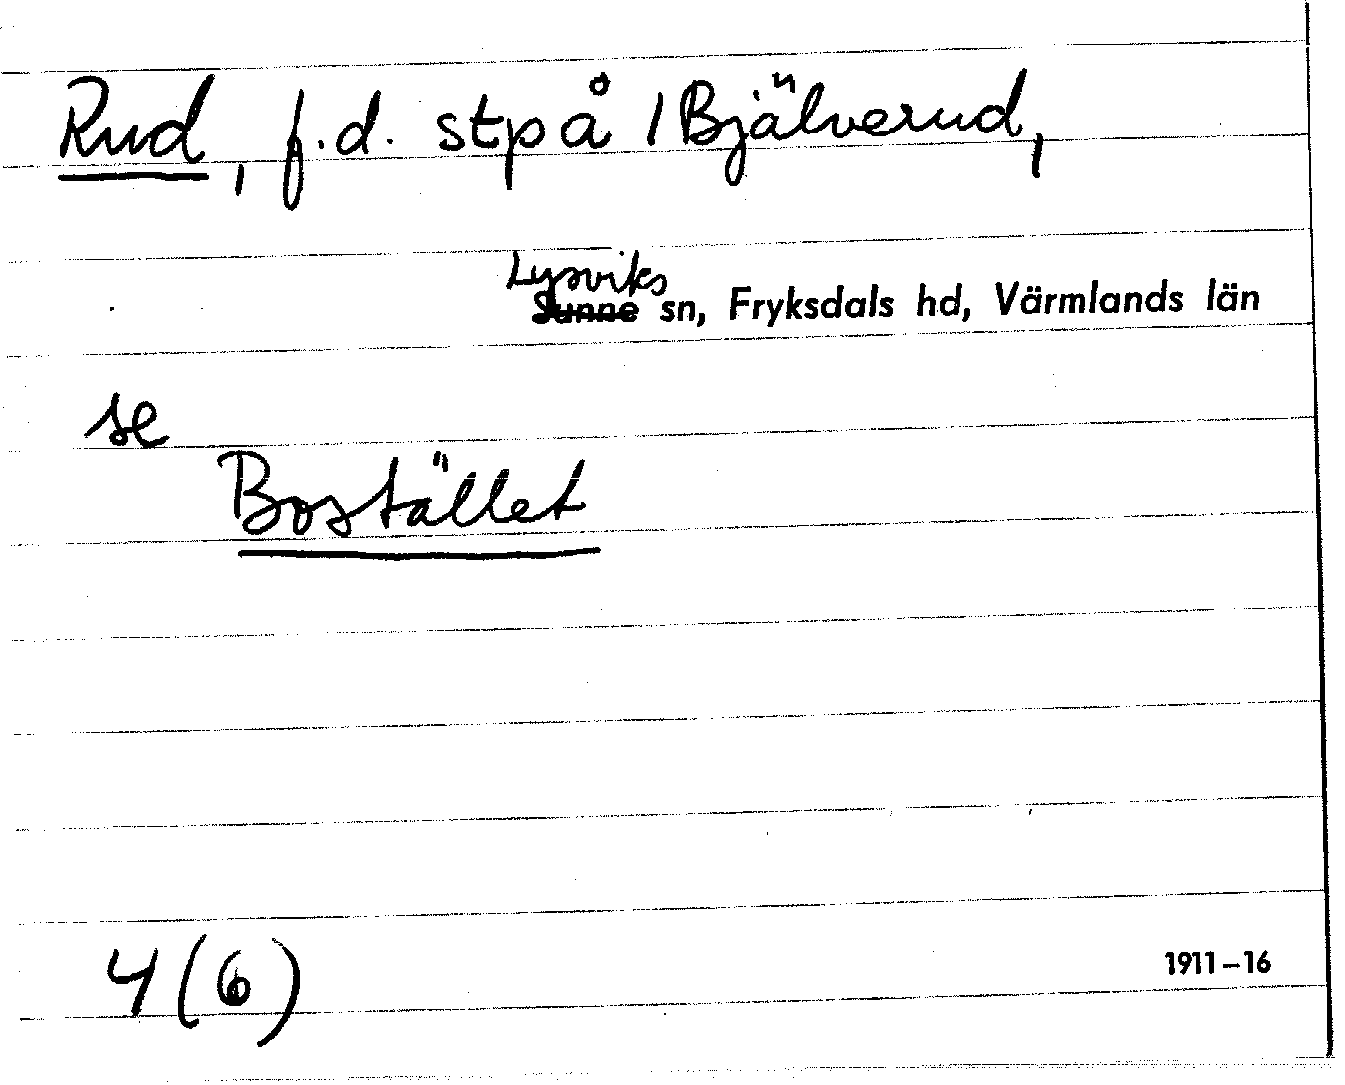 Rud, f.d. stp å 1 Bjälverud,
Lysviks
Sunne sn, Fryksdals hd, Värmlands län
se
Bostället
4(6)
1911-16